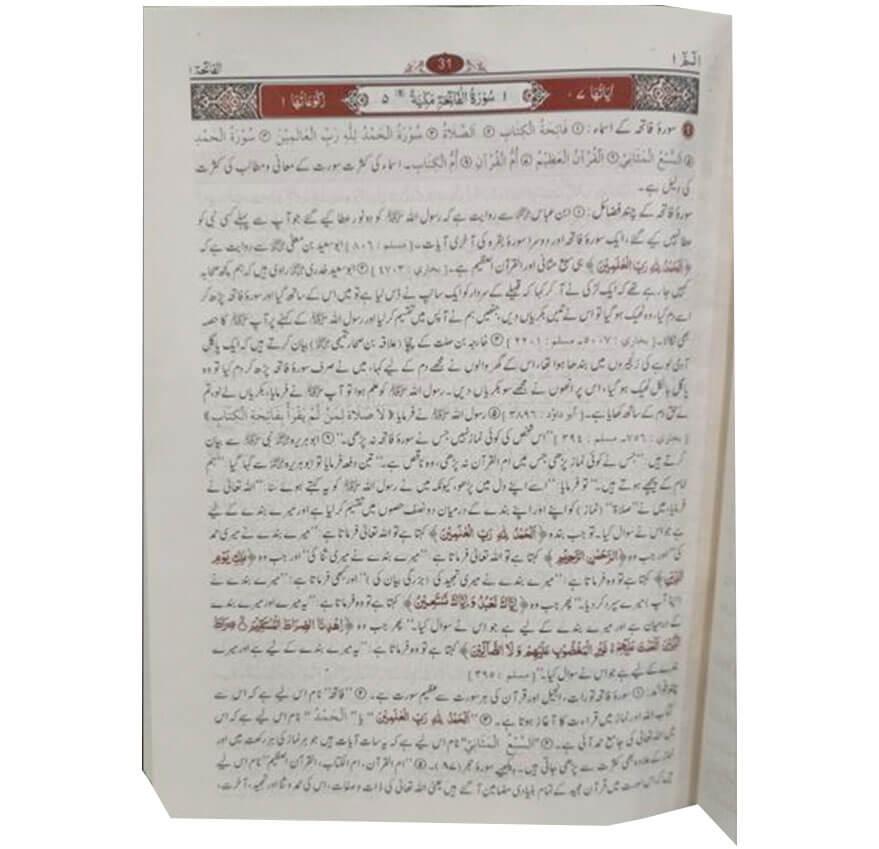 الٓمّٓ ۱ 31 الفاتحۃ ۱
اٰیَاتُهَا ۷ ۱ سُوْرَةُ الْفَاتِحَةِ مَكِّيَّةٌ ۵ رُكُوْعَاتُهَا ۱
① سورۂ فاتحہ کے اسماء : ① فَاتِحَةُ الْكِتَابِ ② اَلصَّلَاةُ ③ سُوْرَةُ الْحَمْدُ لِلّٰهِ رَبِّ الْعَالَمِيْنَ ④ سُوْرَةُ الْحَمْدِ
⑤ اَلسَّبْعُ الْمَثَانِيْ ⑥ اَلْقُرْآنُ الْعَظِيْمُ ⑦ أُمُّ الْقُرْآنِ ⑧ أُمُّ الْكِتَابِ۔ اسماء کی کثرت سورت کے معانی و مطالب کی کثرت
کی دلیل ہے۔
سورۂ فاتحہ کے چند فضائل : ① ابن عباس رضی اللہ عنہما سے روایت ہے کہ رسول اللہ ﷺ کو دو نور عطا کیے گئے جو آپ سے پہلے کسی نبی کو
عطا نہیں کیے گئے، ایک سورۂ فاتحہ اور دوسرا سورۂ بقرہ کی آخری آیات۔ [ مسلم : ۸۰۶ ] ② ابوسعید بن معلّٰی رضی اللہ عنہ سے روایت ہے کہ
﴿اَلْحَمْدُ لِلّٰهِ رَبِّ الْعٰلَمِيْنَ﴾ ہی سبع مثانی اور القرآن العظیم ہے۔ [ بخاري : ۴۷۰۳ ] ③ ابوسعید خدری رضی اللہ عنہ راوی ہیں کہ ہم کچھ صحابہ
کہیں جا رہے تھے کہ ایک لڑکی نے آ کر کہا کہ قبیلے کے سردار کو ایک سانپ نے ڈس لیا ہے تو میں اس کے ساتھ گیا اور سورۂ فاتحہ پڑھ کر
اسے دم کیا، وہ ٹھیک ہو گیا تو اس نے تیس بکریاں دیں، جنھیں ہم نے آپس میں تقسیم کر لیا اور رسول اللہ ﷺ کے کہنے پر آپ ﷺ کا حصہ
بھی نکالا۔ [ بخاري : ۵۰۰۷۔ مسلم : ۲۲۰۱ ] ④ خارجہ بن صلت کے چچا ( علاقہ بن صحار تمیمی رضی اللہ عنہ ) بیان کرتے ہیں کہ ایک پاگل
آدمی لوہے کی زنجیروں میں بندھا ہوا تھا، اس کے گھر والوں نے مجھے دم کے لیے کہا، میں نے صرف سورۂ فاتحہ پڑھ کر دم کیا تو وہ
پاگل بالکل ٹھیک ہو گیا، اس پر انھوں نے مجھے سو بکریاں دیں۔ رسول اللہ ﷺ کو علم ہوا تو آپ ﷺ نے فرمایا، بکریاں لے لو، تم
نے حق دم کے ساتھ کھایا ہے۔ [ أبو داوٗد : ۳۸۹۶ ] ⑤ رسول اللہ ﷺ نے فرمایا : « لَا صَلَاةَ لِمَنْ لَمْ يَقْرَأْ بِفَاتِحَةِ الْكِتَابِ »
[ بخاري : ۷۵۶۔ مسلم : ۳۹۴ ] ”اس شخص کی کوئی نماز نہیں جس نے سورۂ فاتحہ نہ پڑھی۔“ ⑥ ابوہریرہ رضی اللہ عنہ نبی ﷺ سے بیان
کرتے ہیں : ”جس نے کوئی نماز پڑھی جس میں ام القرآن نہ پڑھی، وہ ناقص ہے۔“ تین دفعہ فرمایا تو ابوہریرہ رضی اللہ عنہ سے کہا گیا : ”ہم
امام کے پیچھے ہوتے ہیں۔“ تو فرمایا : ”اسے اپنے دل میں پڑھو، کیونکہ میں نے رسول اللہ ﷺ کو یہ کہتے ہوئے سنا : ”اللہ تعالیٰ نے
فرمایا، میں نے ”صلاۃ“ ( نماز ) کو اپنے اور اپنے بندے کے درمیان دو نصف حصوں میں تقسیم کر لیا ہے اور میرے بندے کے لیے
ہے جو اس نے سوال کیا۔ تو جب بندہ ﴿ اَلْحَمْدُ لِلّٰهِ رَبِّ الْعٰلَمِيْنَ ﴾ کہتا ہے تو اللہ تعالیٰ فرماتا ہے : ”میرے بندے نے میری حمد
کی“ اور جب وہ ﴿ الرَّحْمٰنِ الرَّحِيْمِ ﴾ کہتا ہے تو اللہ تعالیٰ فرماتا ہے : ”میرے بندے نے میری ثنا کی“ اور جب وہ ﴿ مٰلِكِ يَوْمِ
الدِّيْنِ ﴾ کہتا ہے تو وہ فرماتا ہے : ”میرے بندے نے میری تمجید کی ( بزرگی بیان کی )“ اور کبھی فرماتا ہے : ”میرے بندے نے
( اپنا آپ ) میرے سپرد کر دیا۔“ پھر جب وہ ﴿ اِيَّاكَ نَعْبُدُ وَاِيَّاكَ نَسْتَعِيْنُ ﴾ کہتا ہے تو وہ فرماتا ہے : ”یہ میرے اور میرے بندے
کے درمیان ہے اور میرے بندے کے لیے ہے جو اس نے سوال کیا۔“ پھر جب وہ ﴿ اِهْدِنَا الصِّرَاطَ الْمُسْتَقِيْمَ صِرَاطَ
الَّذِيْنَ اَنْعَمْتَ عَلَيْهِمْ غَيْرِ الْمَغْضُوْبِ عَلَيْهِمْ وَلَا الضَّآلِّيْنَ ﴾ کہتا ہے تو وہ فرماتا ہے : ”یہ میرے بندے کے لیے ہے اور میرے
بندے کے لیے ہے جو اس نے سوال کیا۔“ [ مسلم : ۳۹۵ ]
چند فوائد : ① سورۂ فاتحہ تورات، انجیل اور قرآن کی ہر سورت سے عظیم سورت ہے۔ ② ”فاتحہ“ نام اس لیے ہے کہ اس سے
کتاب اللہ اور نماز میں قراءت کا آغاز ہوتا ہے۔ ③ ”اَلْحَمْدُ لِلّٰهِ رَبِّ الْعٰلَمِيْنَ“ یا ”اَلْحَمْدُ“ نام اس لیے ہے کہ اس
میں اللہ تعالیٰ کی جامع حمد آئی ہے۔ ④ ”اَلسَّبْعُ الْمَثَانِيْ“ نام اس لیے ہے کہ یہ سات آیات ہیں جو ہر نماز کی ہر رکعت میں اور
نماز کے علاوہ بھی کثرت سے پڑھی جاتی ہیں۔ دیکھیے سورۂ حجر (۸۷)۔ ⑤ ”ام القرآن، ام الکتاب، القرآن العظیم“ نام اس لیے
ہے کہ اس سورت میں قرآن مجید کے تمام بنیادی مضامین آ گئے ہیں یعنی اللہ تعالیٰ کی ذات و صفات، اس کی حمد و ثنا اور تمجید، آخرت،